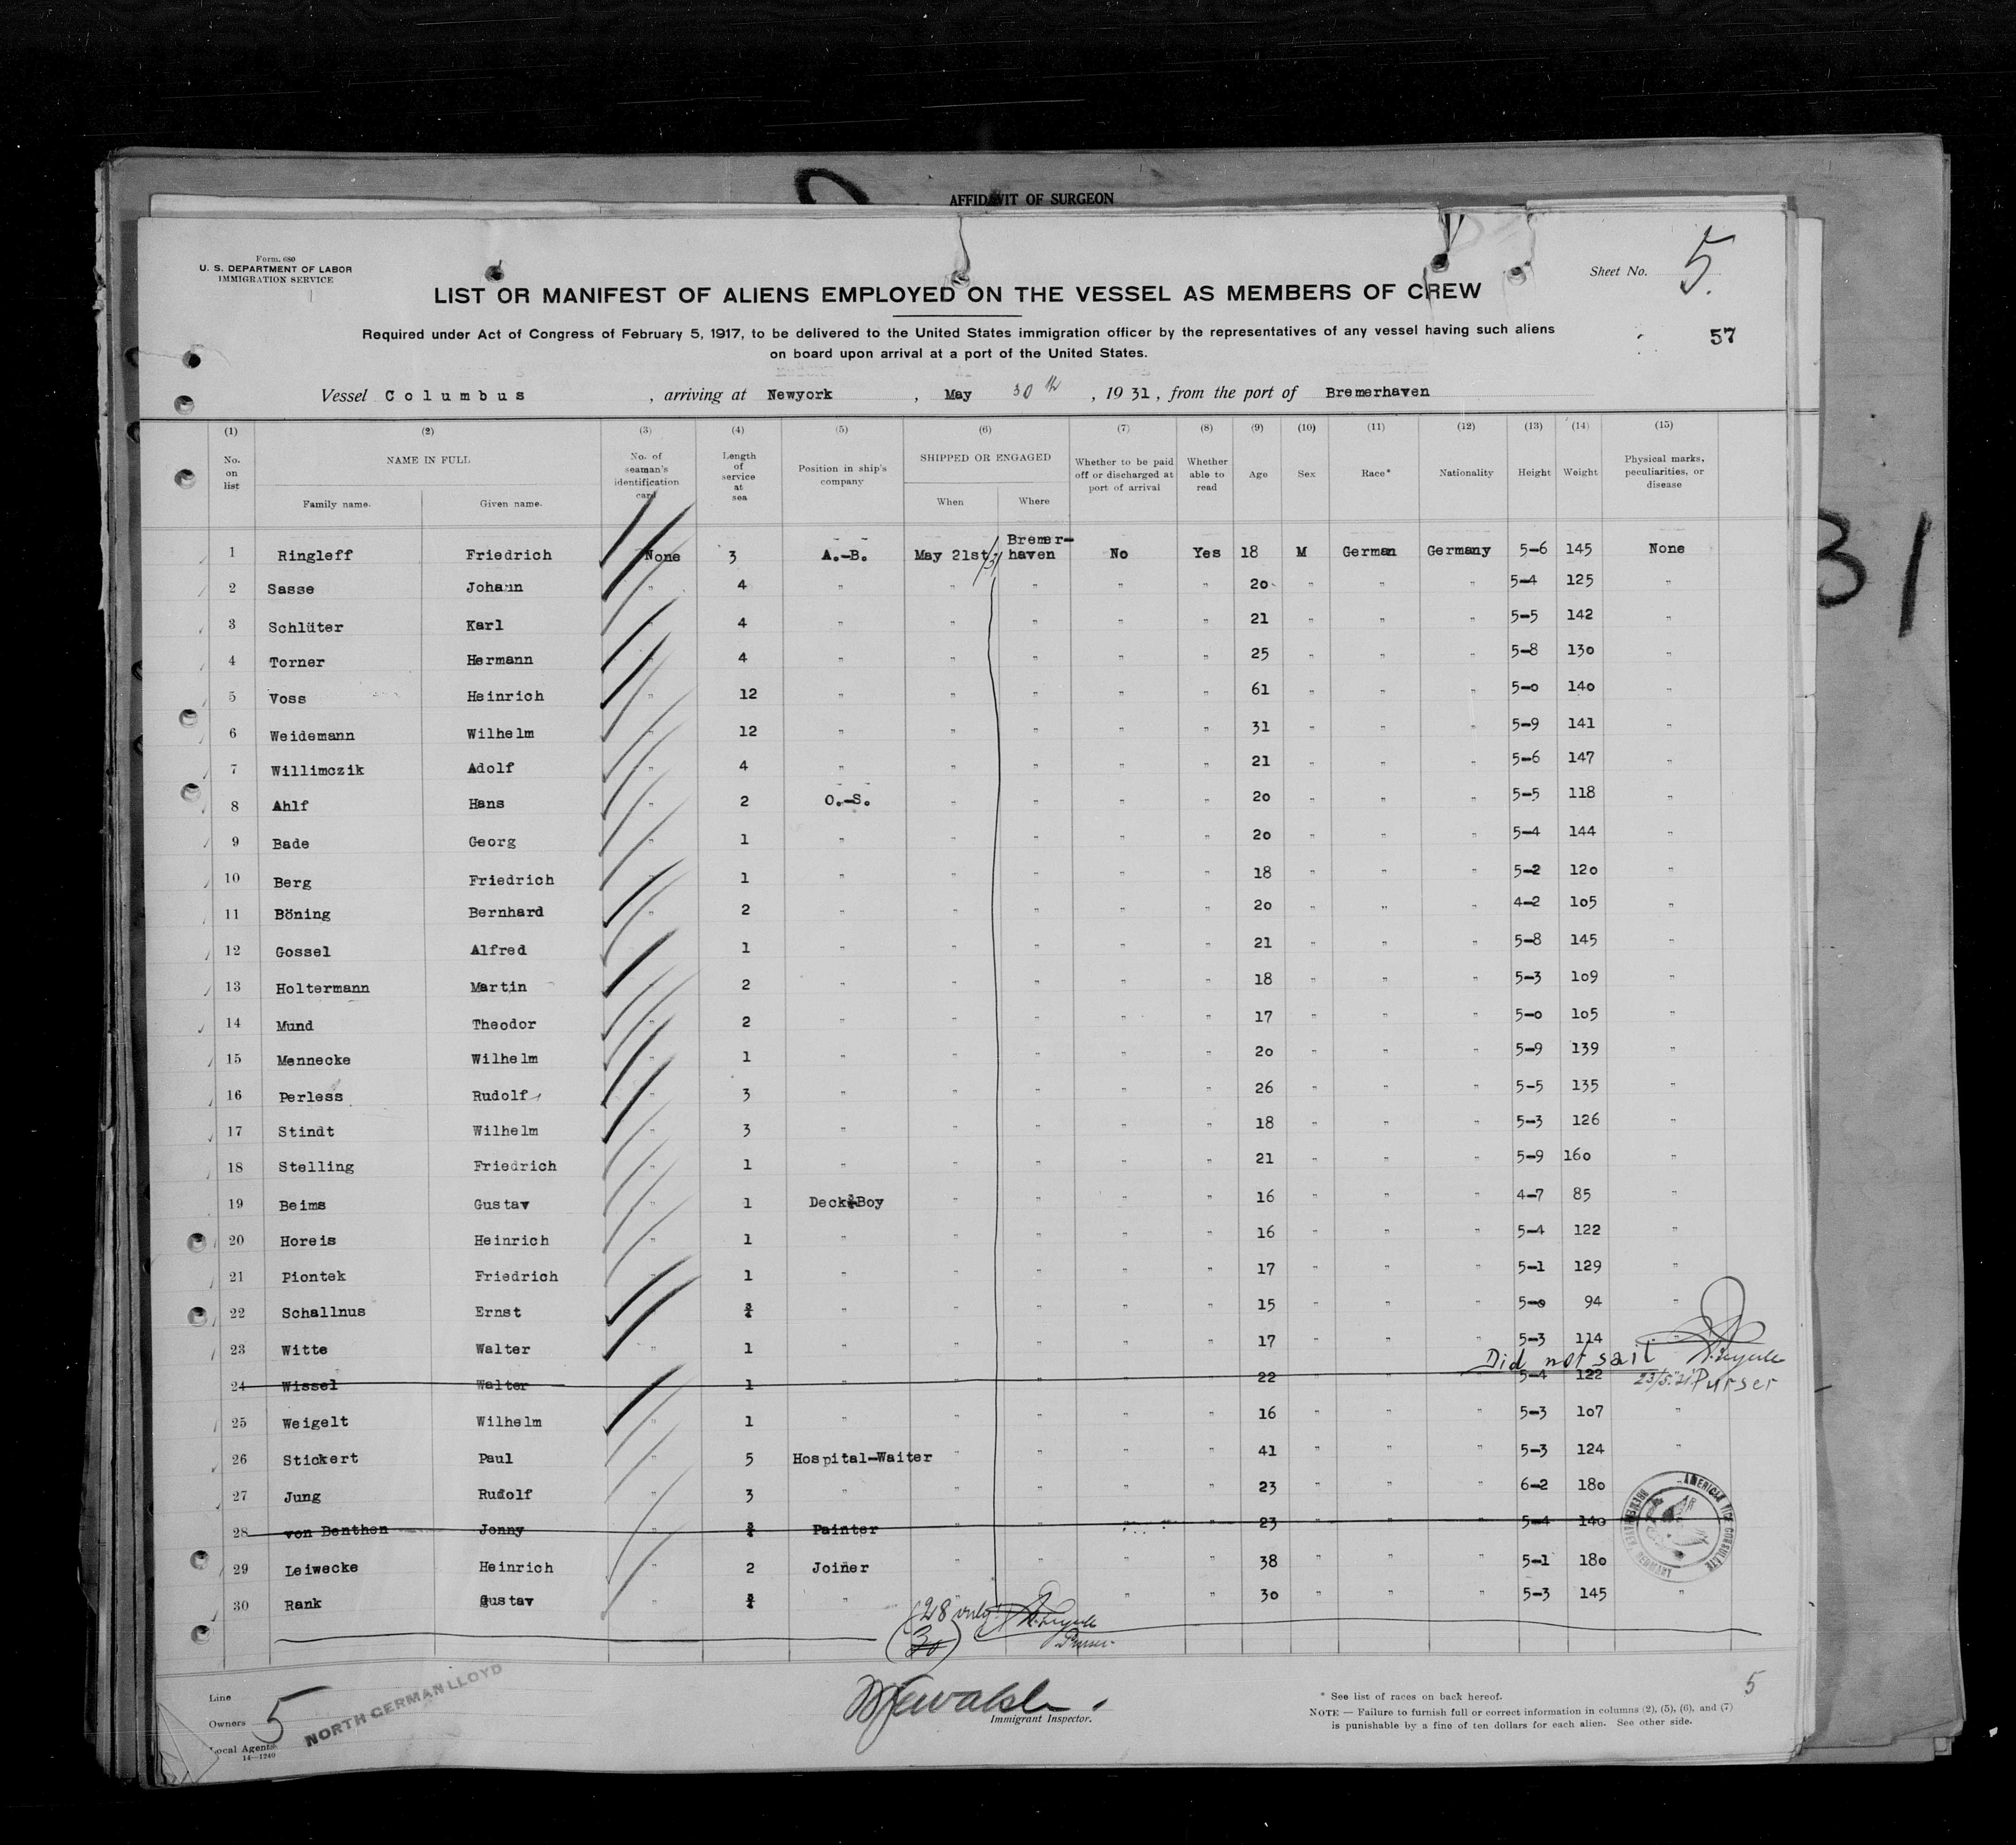 AFFIDAVIT OF SURGEON
Form. 680
U. S. DEPARTMENT OF LABOR
IMMIGRATION SERVICE
Sheet No. 5.
LIST OR MANIFEST OF ALIENS EMPLOYED ON THE VESSEL AS MEMBERS OF CREW
Required under Act of Congress of February 5, 1917, to be delivered to the United States immigration officer by the representatives of any vessel having such aliens
on board upon arrival at a port of the United States.
57
Vessel Columbus , arriving at Newyork , May 30th , 1931, from the port of Bremerhaven
(1) (2) (3) (4) (5) (6) (7) (8) (9) (10) (11) (12) (13) (14) (15)
No. on list NAME IN FULL Family name. Given name. No. of seaman's identification card Length of service at sea Position in ship's company SHIPPED OR ENGAGED When Where Whether to be paid off or discharged at port of arrival Whether able to read Age Sex Race* Nationality Height Weight Physical marks, peculiarities, or disease
1 Ringleff Friedrich None 3 A.-B. May 21st/31 Bremer-haven No Yes 18 M German Germany 5-6 145 None
2 Sasse Johann " 4 " " " " " 20 " " " 5-4 125 "
3 Schlüter Karl " 4 " " " " " 21 " " " 5-5 142 "
4 Torner Hermann " 4 " " " " " 25 " " " 5-8 130 "
5 Voss Heinrich " 12 " " " " " 61 " " " 5-0 140 "
6 Weidemann Wilhelm " 12 " " " " " 31 " " " 5-9 141 "
7 Willimczik Adolf " 4 " " " " " 21 " " " 5-6 147 "
8 Ahlf Hans " 2 O.-S. " " " " 20 " " " 5-5 118 "
9 Bade Georg " 1 " " " " " 20 " " " 5-4 144 "
10 Berg Friedrich " 1 " " " " " 18 " " " 5-2 120 "
11 Böning Bernhard " 2 " " " " " 20 " " " 4-2 105 "
12 Gossel Alfred " 1 " " " " " 21 " " " 5-8 145 "
13 Holtermann Martin " 2 " " " " " 18 " " " 5-3 109 "
14 Mund Theodor " 2 " " " " " 17 " " " 5-0 105 "
15 Mennecke Wilhelm " 1 " " " " " 20 " " " 5-9 139 "
16 Perless Rudolf " 3 " " " " " 26 " " " 5-5 135 "
17 Stindt Wilhelm " 3 " " " " " 18 " " " 5-3 126 "
18 Stelling Friedrich " 1 " " " " " 21 " " " 5-9 160 "
19 Beims Gustav " 1 Deck-Boy " " " " 16 " " " 4-7 85 "
20 Horeis Heinrich " 1 " " " " " 16 " " " 5-4 122 "
21 Piontek Friedrich " 1 " " " " " 17 " " " 5-1 129 "
22 Schallnus Ernst " ¾ " " " " " 15 " " " 5-0 94 "
23 Witte Walter " 1 " " " " " 17 " " " 5-3 114 "
Did not sail
24 Wissel Walter 1 " " " " " 22 " " " 5-4 122 23/5.31 Purser
25 Weigelt Wilhelm " 1 " " " " " 16 " " " 5-3 107 "
26 Stickert Paul " 5 Hospital-Waiter " " " " 41 " " " 5-3 124 "
27 Jung Rudolf " 3 " " " " " 23 " " " 6-2 180
28 von Benthen Jonny " ¾ Painter " " " " 23 " " " 5-4 140
29 Leiwecke Heinrich " 2 Joiner " " " " 38 " " " 5-1 180
30 Rank Gustav " ¾ " " " 30 " " " 5-3 145 "
AMERICAN VICE CONSULATE BREMERHAVEN GERMANY
(28 only
(30) Purser
31
Line
Owners
Local Agents
14—1240
5
NORTH GERMAN LLOYD
Immigrant Inspector.
* See list of races on back hereof.
NOTE — Failure to furnish full or correct information in columns (2), (5), (6), and (7)
is punishable by a fine of ten dollars for each alien. See other side.
5